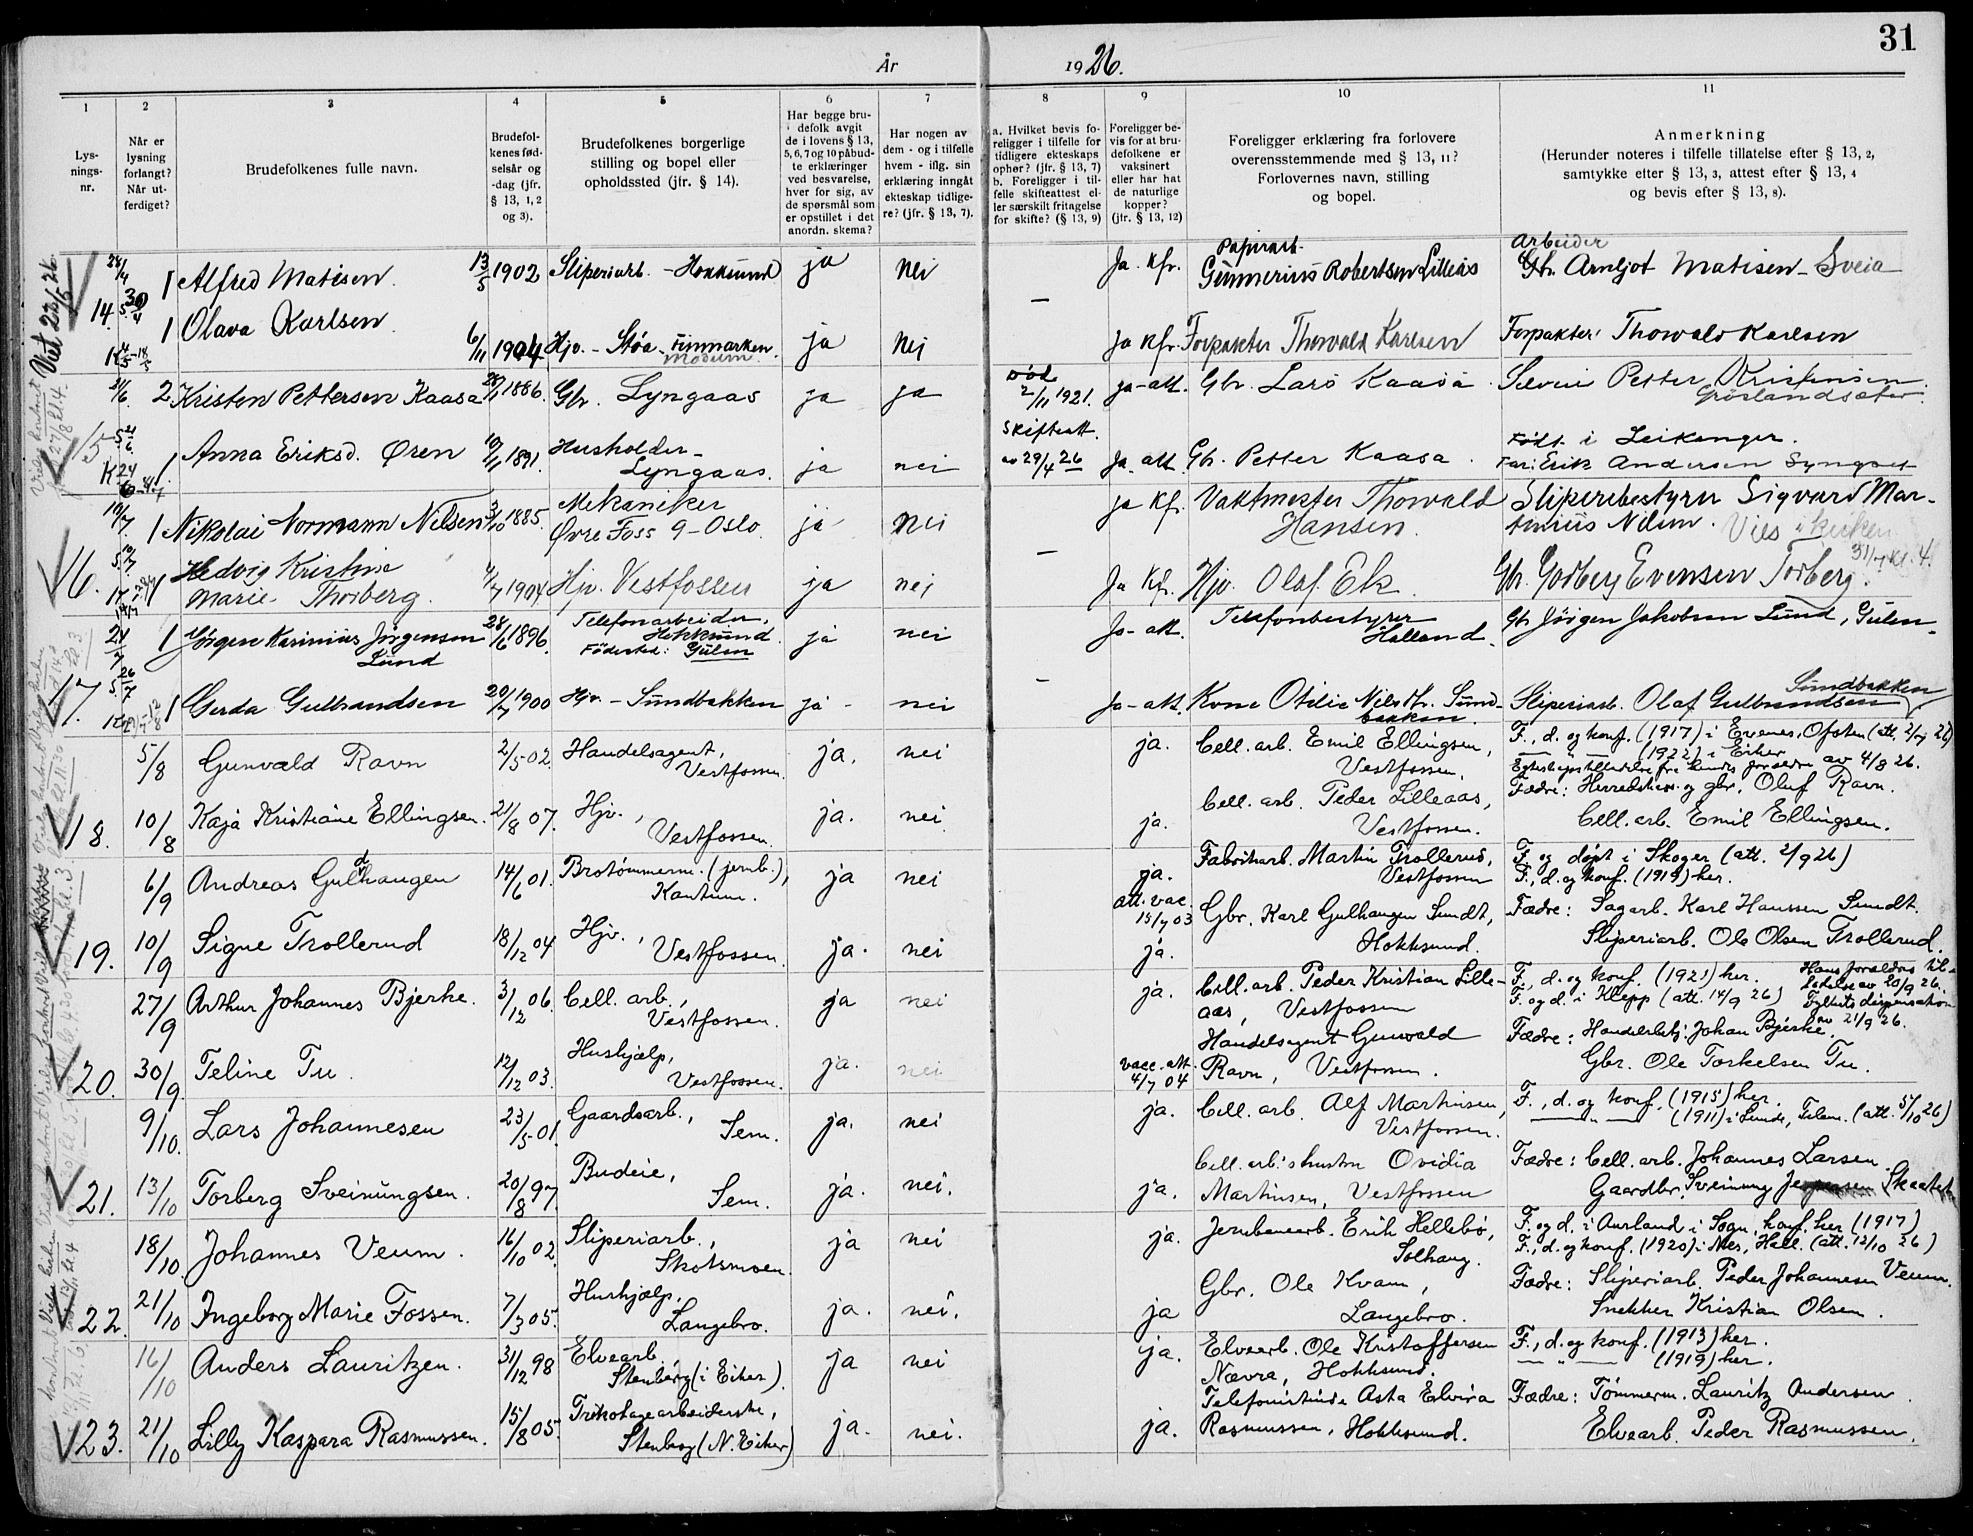 31
År 1926.
1 2 3 4 5 6 7 8 9 10 11
Lys-
nings-
nr.
Når er
lysning
forlangt?
Når ut-
ferdiget?
Brudefolkenes fulle navn.
Brudefol-
kenes fød-
selsår og
-dag (jfr.
§ 13, 1, 2
og 3).
Brudefolkenes borgerlige
stilling og bopel eller
opholdssted (jfr. § 14).
Har begge bru-
defolk avgit
de i lovens § 13,
5, 6, 7 og 10 påbud-
te erklæringer
ved besvarelse,
hver for sig, av
de spørsmål som
er opstillet i det
anordn. skema?
Har nogen av
dem - og i tilfelle
hvem - iflg. sin
erklæring inngåt
ekteskap tidlige-
re? (jfr. § 13, 7).
a. Hvilket bevis fo-
religger i tilfelle for
tidligere ekteskaps
ophør? (jfr. § 13, 7)
b. Foreligger i til-
felle skifteattest el-
ler særskilt fritagelse
for skifte? (§ 13, 9)
Foreligger be-
vis for at bru-
defolkene er
vaksinert
eller har hat
de naturlige
kopper?
(jfr. § 13, 12)
Foreligger erklæring fra forlovere
overensstemmende med § 13, 11?
Forlovernes navn, stilling
og bopel.
Anmerkning
(Herunder noteres i tilfelle tillatelse efter § 13, 2,
samtykke efter § 13, 3, attest efter § 13, 4
og bevis efter § 13, 8).
14. 1 Alfred Matisen 13/5 1902 Sliperiarb. - Hokksund ja nei Ja. kfr. Papirarb. Gunnerius Robertsen Lilleås Arbeider Gbr. Arnljot Matisen - Sveia
1 Olava Karlsen 6/11 1904 Hjv. - Støa - Finnmarken Modum ja nei — ja kfr. Forpakter Thorvald Karlsen Forpakter Thorvald Karlsen
15 2 Kristen Pettersen Kaasa 1886. Gbr. Lyngaas ja ja Død 2/11 1921. ja-att. Gbr. Lars Kaasa Petter Kristensen
1 Anna Eriksd. Øren 1891. Husholder - Lyngaas ja nei Skifteatt. av 29/4 26 Ja. att. Gb. Petter Kaasa Født i Leikanger. Far: Erik Andersen
16. 1 Nikolai Normann Nilsen 3/10 1885. Mekaniker Øvre Foss 9 - Oslo ja nei ja kf. Vaktmester Thorvald Hansen. Sliperibestyrer Sigvard Mar-
tinius Nilsen. Vies i kirken 31/7 kl. 4.
1 Hedvig Kristine Marie Thorberg. 1904. Hjv. Vestfossen ja nei — Ja kf. Hjv. Olaf Ek Gb. Godberg Evensen Torberg.
17. 1 Jørgen Kasinius Jørgensen Lund 28/6 1896. Telefonarbeider, Hokksund Fødested: Gulen ja nei Ja-att. Telefonbestyrer Halland. Gb Jørgen Jakobsen Lund, Gulen.
1 Gerda Gulbrandsen 20/7 1900 Hjv. - Sundbakken ja - nei — Ja-att. Kone Otilie Nilsdtr. Sund-
bakken. Sliperiarb. Olaf Gulbrandsen Sundbakken
5/8 Gunvald Ravn 2/5 02. Handelsagent, Vestfossen ja, nei ja. Cell. arb. Emil Ellingsen, Vestfossen. F., d. og konf. (1917) i Evenes, Ofoten (att. 2/7 26)
— " — (1922) i Eiker
Egteskapstilladelse fra hendes forældre av 4/8 26.
18. 10/8 Kaja Kristiane Ellingsen. 21/8 07. Hjv., Vestfossen. ja. nei ja. Cell. arb. Peder Lilleaas, Vestfossen. Fædre: Herredskass. og gbr. Oluf Ravn.
Cell. arb. Emil Ellingsen.
6/9 Andreas Gulhaugen 14/6 01. Brotømmerm. (jernb.), ja nei ja. Fabrikarb. Martin Trollerud, Vestfossen F. og døpt i Skoger (att. 2/9 26)
F., d. og konf. (1919) her.
19. 10/9 Signe Trollerud 18/12 04 Hjv., Vestfossen. ja. nei att. vac. 15/7 03 ja. Gbr. Karl Gulhaugen Sundt, Hokksund. Fædre: Sagarb. Karl Hanssen Sundt.
Sliperiarb. Ole Olsen Trollerud.
27/9 Arthur Johannes Bjerke. 3/12 06. Cell. arb., Vestfossen. ja nei ja. Cell. arb. Peder Kristian Lille-
aas, Vestfossen F., d. og konf. (1921) her. Hans forældres til-
ladelse av 20/9 26.
F. og d. i Klepp (att. 14/9 26) Fylkets dispensation av 21/9 26.
20. 30/9 Teline Tu. 12/12 03. Hushjælp, Vestfossen. ja. nei vacc. att. 4/7 04 Handelsagent Gunvald Ravn, Vestfossen. Fædre: Handelsbetj. Johan Bjerke.
Gbr. Ole Torkelsen Tu.
9/10. Lars Johannesen 23/5 01. Gaardsarb., Sem. ja. nei ja. Cell. arb. Alf Martinsen, Vestfossen. F., d. og konf. (1915) her.
— " — (1911) i Lunde, Telem. (att. 5/10 26)
21. 13/10 Torberg Sveinungsen. 20/8 97. Budeie, Sem. ja. nei. ja. Cell. arb.s hustru Ovidia Martinsen, Vestfossen Fædre: Cell. arb. Johannes Larsen
Gaardbr. Sveinung
18/10. Johannes Veum. 16/10 02. Sliperiarb., Skotsmoen. ja nei ja. Jernbanearb. Erik Hellebø, Solhaug. F. og d. i Aurland i Sogn, konf. her (1917)
F., d. og konf. (1920) i Nes, Hall. (att. 12/10 26)
22. 21/10 Ingeborg Marie Fossen. 7/3 05. Hushjælp, Langebro. ja. nei. ja Gbr. Ole Kvam, Langebro. Fædre: Sliperiarb. Peder Johannesen Veum.
Snekker Kristian Olsen.
16/10 Anders Lauritzen. 31/12 98 Elvearb. Stenberg (i Eiker). ja nei ja. Elvearb. Ole Kristoffersen Nævra, Hokksund. F., d. og konf. (1913) her.
— " — (1919) her.
23. 21/10 Lilly Kaspara Rasmussen. 15/8 05. Trikotagearbeiderske, Stenberg (N. Eiker) ja. nei. ja. Telefonistinde Asta Elvira Rasmussen, Hokksund. Fædre: Tømmerm. Lauritz Andersen
Elvearb. Peder Rasmussen.